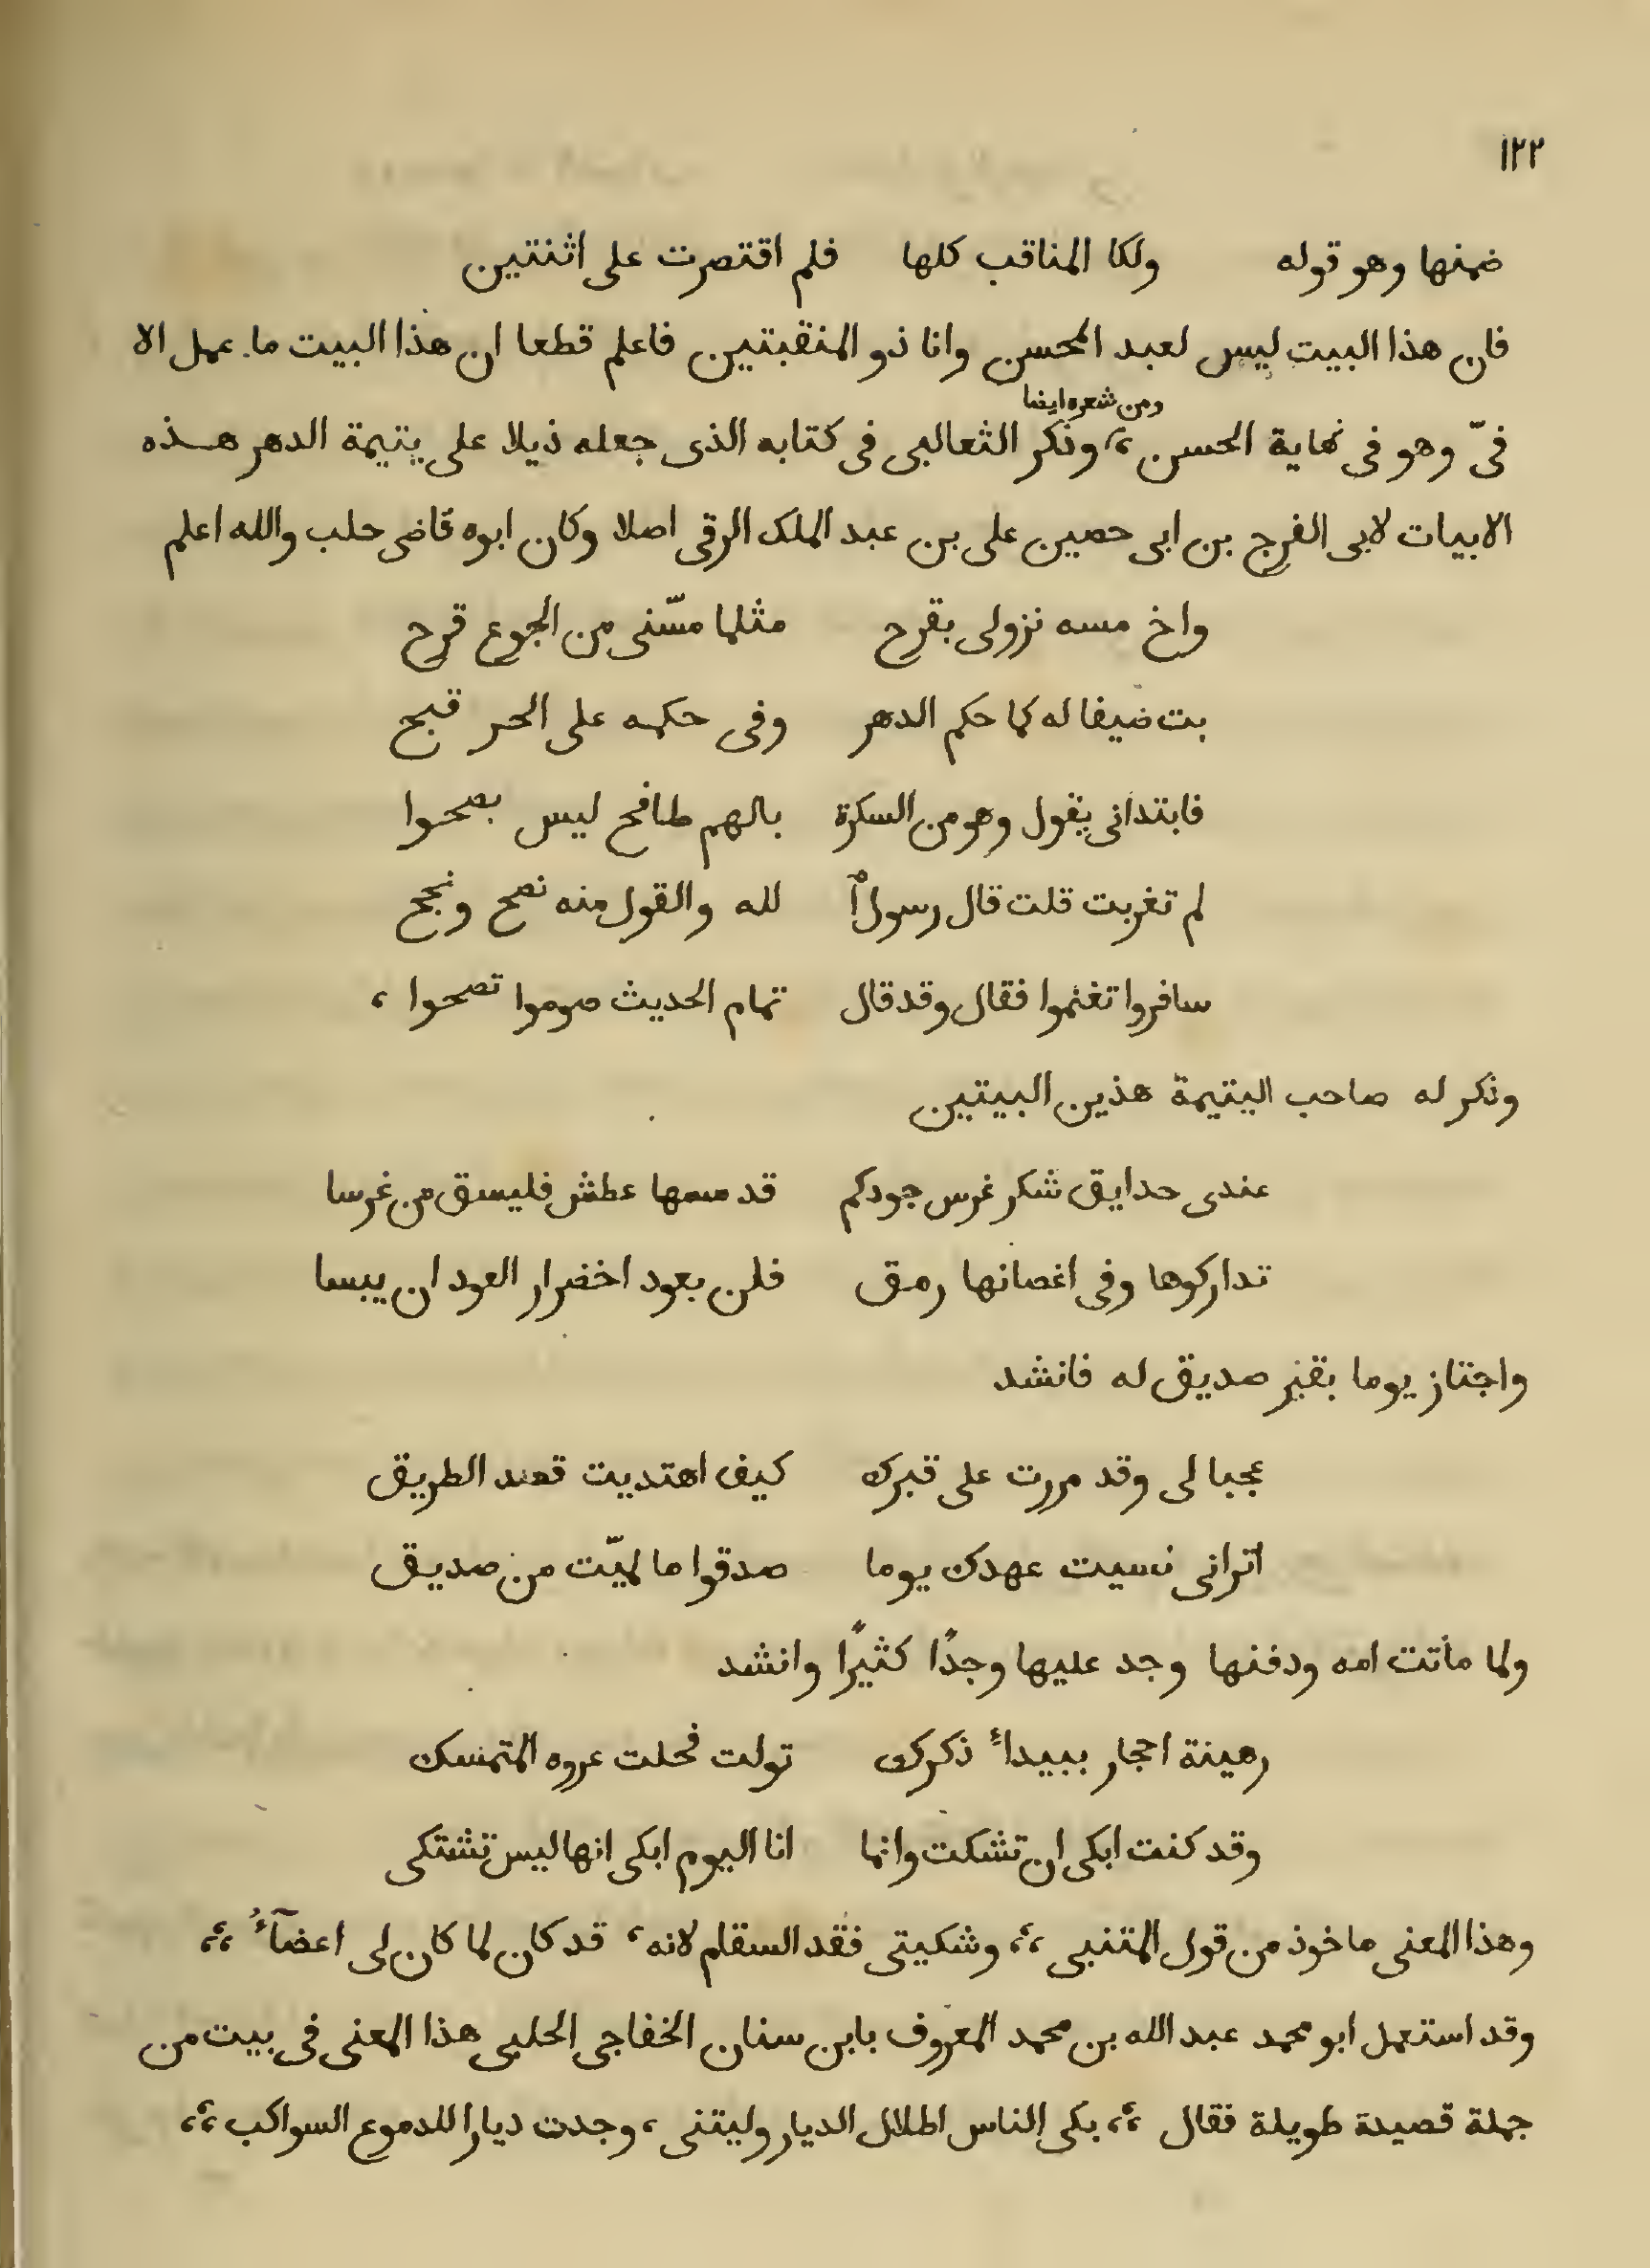 ١٢٢
ضمنها وهو قوله ولكا المناقب كلها فلم اقتصرت على اثنتين
فان هذا البيت ليس لعبد المحسن وانا ذو المنقبتين فاعلم قطعا ان هذا البيت ما عمل الا
ومن شعره ايضا
فىّ وهو فى نهاية الحسن ؛ وذكر الثعالبى فى كتابه الذى جعله ذيلا على يتيمة الدهر هذه
الابيات لابى الفرج بن ابى حصين على بن عبد الملك الرقى اصلا وكان ابوه قاضى حلب والله اعلم
واخ مسه نزولى بقرح مثلما مسّنى من الجوع قرح
بت ضيفا له كما حكم الدهر وفى حكمه على الحر قبح
فابتدانى يقول وهو من السكرة بالهم طافح ليس بصحوا
لم تغربت قلت قال رسول لله والقول منه نصح ونجح
سافروا تغنموا فقال وقد قال تمام الحديث صوموا تصحوا ،
وذكر له صاحب اليتيمة هذين البيتين
عندى حدايق شكر غرس جودكم قد مسها عطش فليسق من غرسا
تداركوها وفى اغصانها رمق فلن يعود اخضرار العود ان يبسا
واجتاز يوما بقبر صديق له فانشد
عجبا لى وقد مررت على قبرك كيف اهتديت قصد الطريق
اترانى نسيت عهدك يوما صدقوا ما لميّت من صديق
ولما ماتت امه ودفنها وجد عليها وجدًا كثيرًا وانشد
رهينة احجار ببيداءٔ ذكرك تولت فحلت عروه المتمسك
وقد كنت ابكى ان تشكت وانما انا اليوم ابكى انها ليس تشتكى
وهذا المعنى ماخوذ من قول المتنبى ؛، وشكيتى فقد السقام لانه ، قد كان لما كان لى اعضآءُ ؛،
وقد استعمل ابو محمد عبد الله بن محمد المعروف بابن سنان الخفاجى الحلبى هذا المعنى فى بيت من
جملة قصيدة طويلة فقال ؛، بكى الناس اطلال الديار وليتنى ، وجدت ديارا للدموع السواكب ؛،